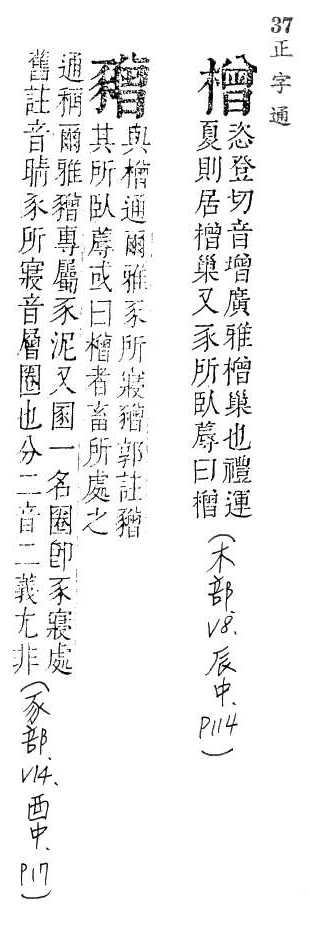 37正字通
橧
恣登切音增廣雅橧巢也禮運
夏則居橧巢又豕所臥蓐曰橧
(木部.V8.辰中.P114)
豬
與橧通爾雅豕所寢豬郭註豬
其所臥蓐或曰橧者畜所處之
通稱爾雅豬專屬豕泥又圂一名圈卽豕寢處
舊註音睛豕所寢音層圈也分二音二義尢非
(豕部.V14.酉中.P17)